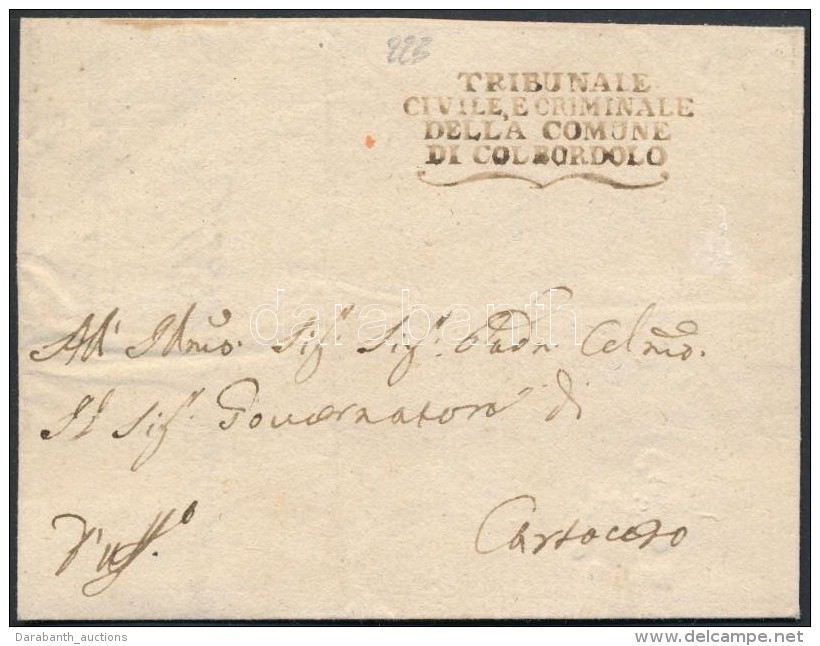 223
TRIBUNALE
CIVILE, E CRIMINALE
DELLA COMUNE
DI COLBORDOLO
darabanth
All' Illmo. Sigr. Sigr. Padn Colmo.
Il Sigr. Governatore di
Cartoceto
D'uff.o
Darabanth_auctions
www.delcampe.net